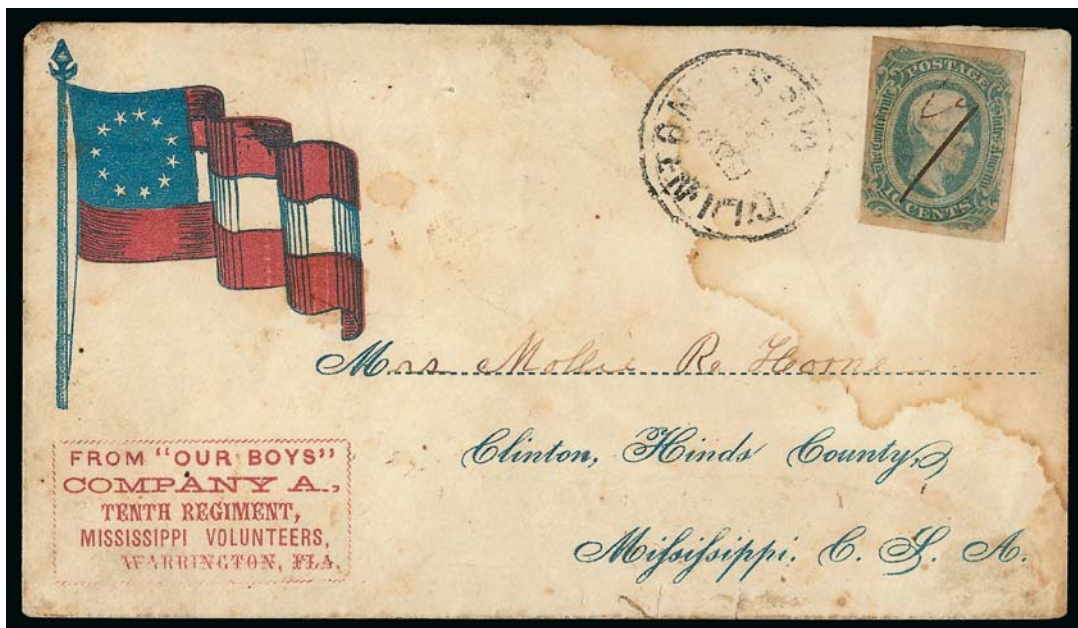 POSTAGE
The Confederate States of America
CENTS
Mrs Mollie R. Horne
Clinton, Hinds County,
Mississippi. C. S. A.
FROM "OUR BOYS"
COMPANY A.,
TENTH REGIMENT,
MISSISSIPPI VOLUNTEERS,
WARRINGTON, FLA.